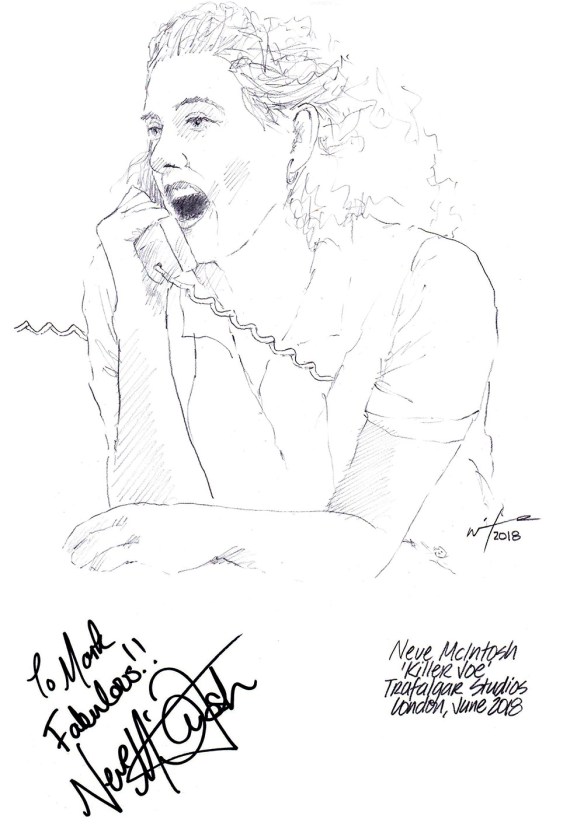 2018
To Mark
Fabulous!!
Neve McIntosh
Neve McIntosh
'Killer Joe'
Trafalgar Studios
London, June 2018